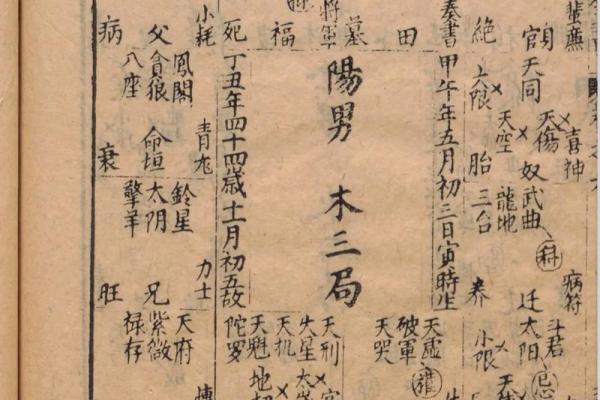 蜚廉
喜神
病符
斗君
官天同
天傷
奴武曲
科
迁太阳
忌
天空
龍地
絶
大限
胎三台
养
小限
奏書
甲午年五月初三日寅時生
田
天虛
破軍
天哭
權
墓
將軍
陽男木三局
天刑
火星
天机
天魁
陀罗
福
死
丁丑年四十四歲十一月初五故
小耗
青龙
力士
博
鳳閣
父貪狼
八座
鈴星
命垣太阴
擎羊
天府
兄紫微
禄存
病
衰
旺